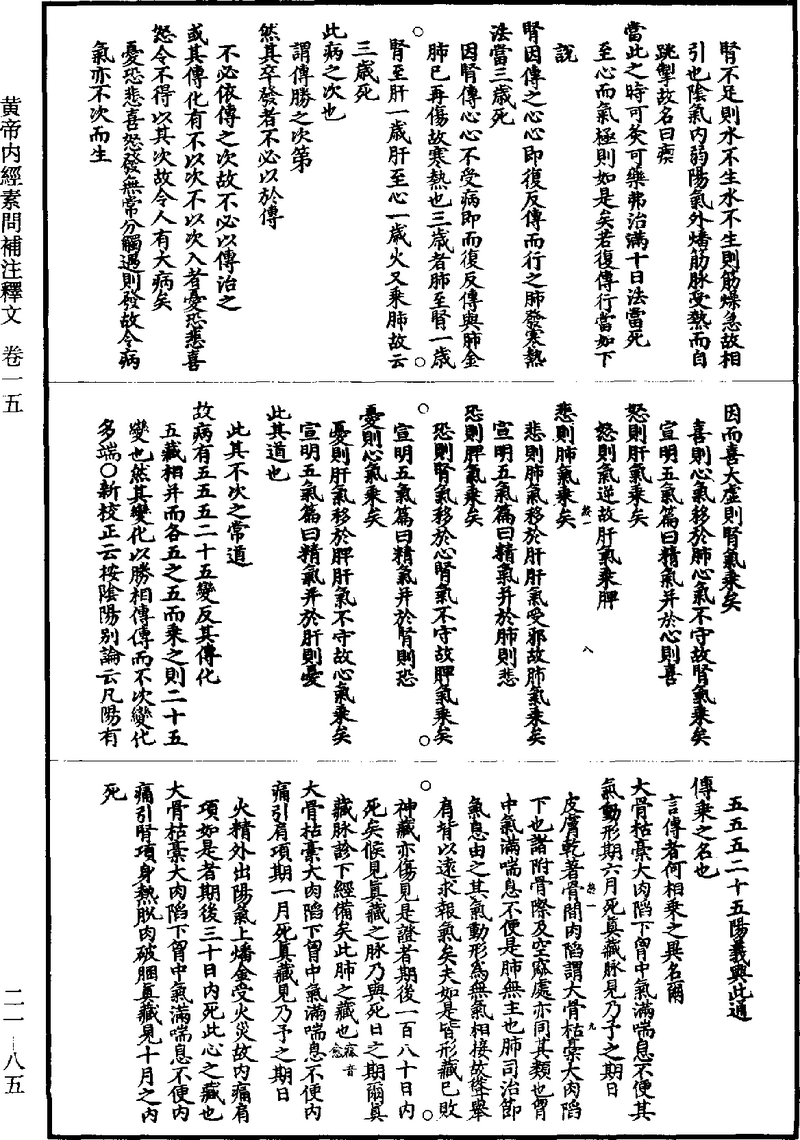 腎不足則水不生水不生則筋燥急故相
引也陰氣内弱陽氣外燔筋脉受熱而自
跳掣故名曰瘛
當此之時可灸可藥弗治滿十日法當死
至心而氣極則如是矣若復傳行當如下
說
腎因傳之心心即復反傳而行之肺發寒熱
法當三歳死
因腎傳心心不受病即而復反傳與肺金
肺已再傷故寒熱也三歳者肺至腎一歳
腎至肝一歳肝至心一歳火又乘肺故云
三歳死
此病之次也
謂傳勝之次第
然其卒發者不必以於傳
不必依傳之次故不必以傳治之
或其傳化有不以次不以次入者憂恐悲喜
怒令不得以其次故令人有大病矣
憂恐悲喜怒發無常分觸遇則發故令病
氣亦不次而生
因而喜大虚則腎氣乘矣
喜則心氣移於肺心氣不守故腎氣乘矣
宣明五氣篇曰精氣并於心則喜
怒則肝氣乘矣
怒則氣逆故肝氣乘脾
悲則肺氣乘矣
悲則肺氣移於肝肝氣受邪故肺氣乘矣
宣明五氣篇曰精氣并於肺則悲
恐則脾氣乘矣
恐則腎氣移於心腎氣不守故脾氣乘矣
宣明五氣篇曰精氣并於腎則恐
憂則心氣乘矣
憂則肝氣移於脾肝氣不守故心氣乘矣
宣明五氣篇曰精氣并於肝則憂
此其道也
此其不次之常道
故病有五五五二十五變反其傳化
五藏相并而各五之五而乘之則二十五
變也然其變化以勝相傳傳而不次變化
多端○新校正云按陰陽別論云凡陽有
五五五二十五陽義與此通
傳乘之名也
言傳者何相乘之異名爾
大骨枯槀大肉陷下胷中氣滿喘息不便其
氣動形期六月死真藏脉見乃予之期日
皮膚乾著骨間肉陷謂大骨枯槀大肉陷
下也諸附骨際及空窳處亦同其類也胷
中氣滿喘息不便是肺無主也肺司治節
氣息由之其氣動形為無氣相接故聳舉
肩背以遠求報氣矣夫如是皆形藏已敗
神藏亦傷見是證者期後一百八十日内
死矣候見真藏之脉乃與死日之期爾真
藏脉診下經備矣此肺之藏也窳音愈
大骨枯槀大肉陷下胷中氣滿喘息不便内
痛引肩項期一月死真藏見乃予之期日
火精外出陽氣上燔金受火災故内痛肩
項如是者期後三十日内死此心之藏也
大骨枯槀大肉陷下胷中氣滿喘息不便内
痛引腎項身熱脫肉破䐃真藏見十月之内
死
黄帝内經素問補注釋文 卷一五
二一—八五